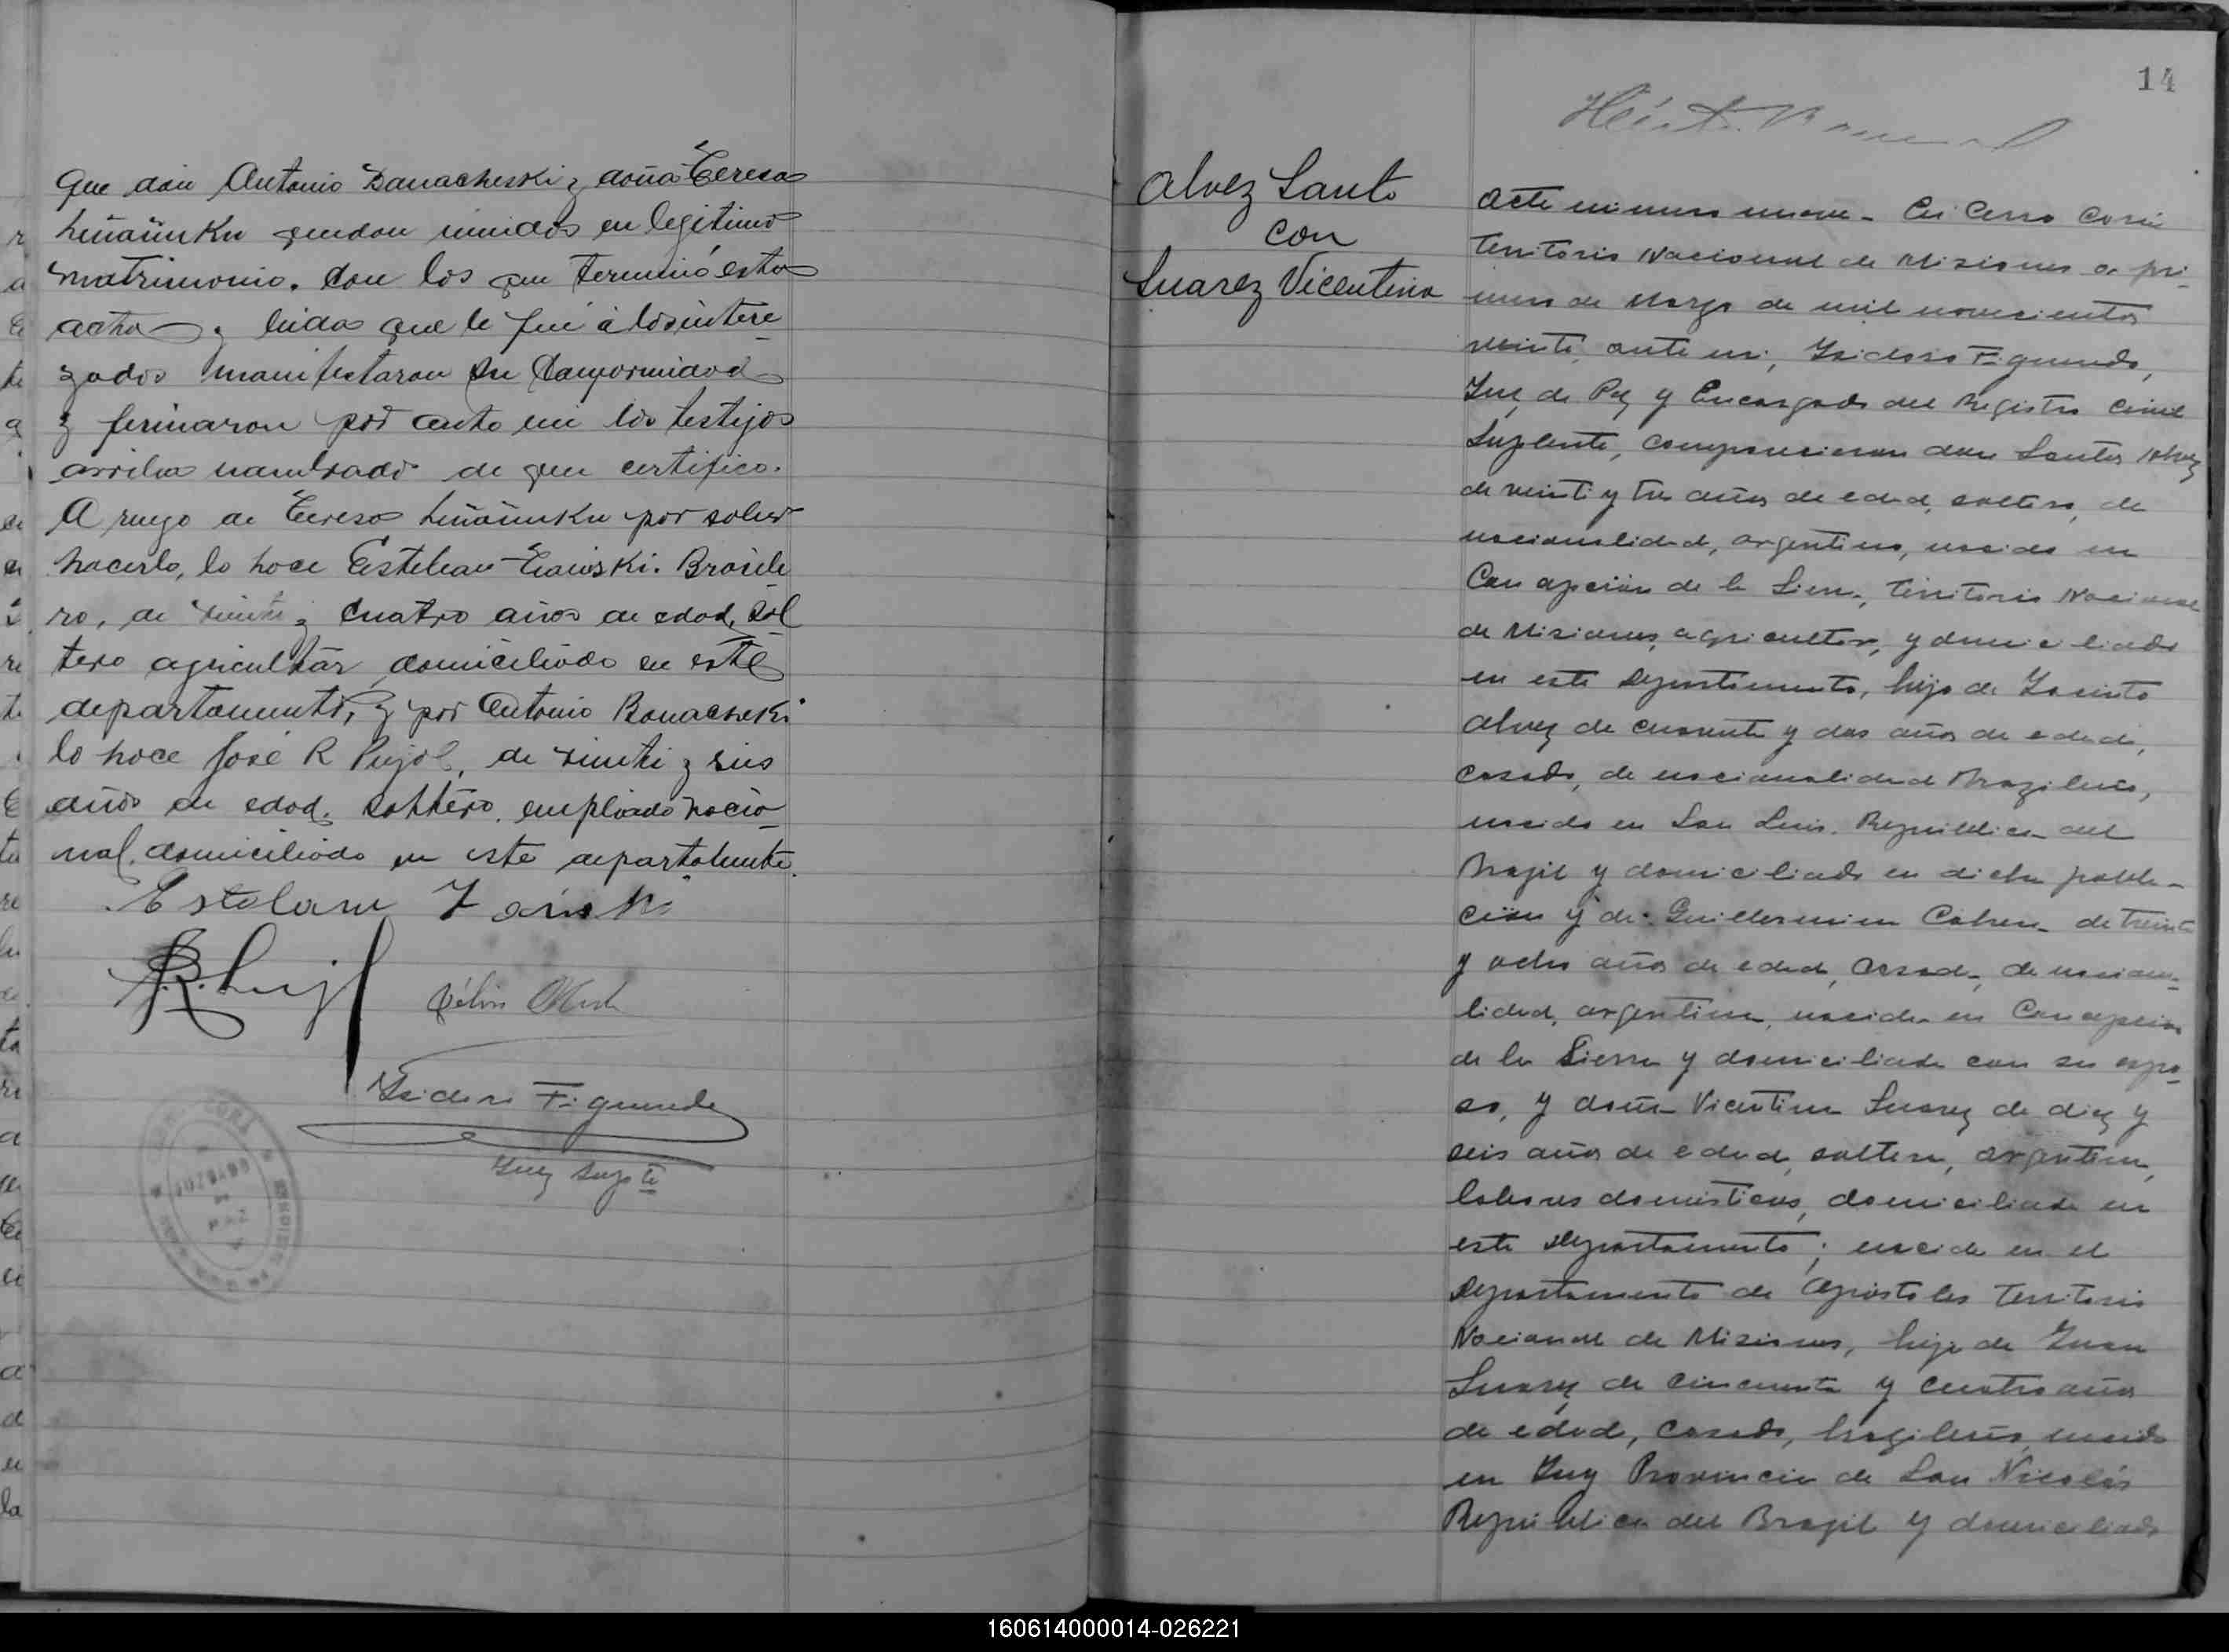 que don Antonio Banacheski y doña Teresa
quedan unidos en legitimo
matrimonio. Con los que terminó esta
acta y leida que le fué á los intere
zados manifestaron su conformidad
y firmaron por ante mi los testijos
arriba nombrado de que certifico.
A ruego de Teresa por saber
hacerlo, lo hace Esteban Brasile
ro, de veinte y cuatro años de edad, sol
tero agricultor, domiciliado en este
departamento, y por Antonio Banacheski
lo hace José R Pujol, de veinte y seis
años de edad, soltero, empleado nacio
nal, domiciliado en este departamente.
Estelanu
J.R. Pujol
Isidoro Figueredo
Juez Supte
JUZGADO
DE
PAZ
14
Alvez Santo
con
Suarez Vicentina
Acta número nueve - En Cerro Corá
Territorio Nacional de Misiones a pri-
mero de Marzo de mil novecientos
veinte, ante mi, Isidoro Figueredo,
Juez de Paz y Encargado del Registro Civil
Suplente, comparecieron don Santos Alvez
de veinti y tres años de edad, soltero, de
nacionalidad, argentino, nacido en
Concepción de la Sierra, Territorio Nacional
de Misiones, agricultor, y domiciliado
en este Departamento, hijo de Jacinto
Alvez de cuarenta y dos años de edad,
casado, de nacionalidad Brazilero,
nacido en San Luis. República del
Brazil y domiciliado en dicha pobla-
ción y de Guillermina Cabrera de treinta
y ocho años de edad, casada, de naciona-
lidad, argentina, nacida en Concepción
de la Sierra y domiciliada con su espo-
so, y doña Vicentina Suarez de diez y
seis años de edad, soltera, argentina,
labores domésticas, domiciliada en
este Departamento; nacida en el
Departamento de Apóstoles Territorio
Nacional de Misiones, hija de Juan
Suarez de cincuenta y cuatro años
de edad, casado, brazilero, nacido
en Provincia de San Nicolás
República del Brazil y domiciliado
160614000014-026221